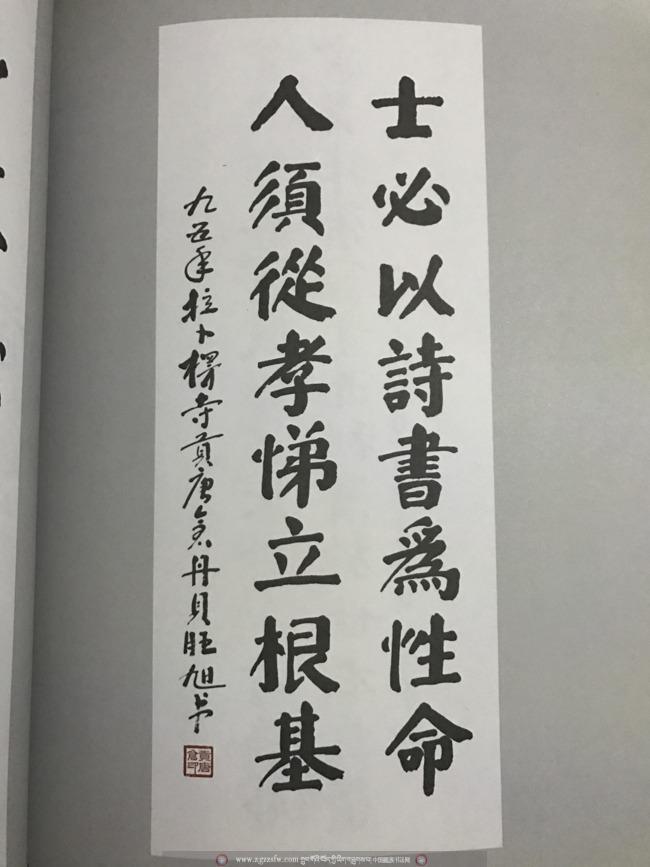 士必以詩書爲性命
人須從孝悌立根基
九五年拉卜楞寺貢唐倉丹貝旺旭书
貢唐倉印
www.zgzzsfw.com 中国藏族书法网